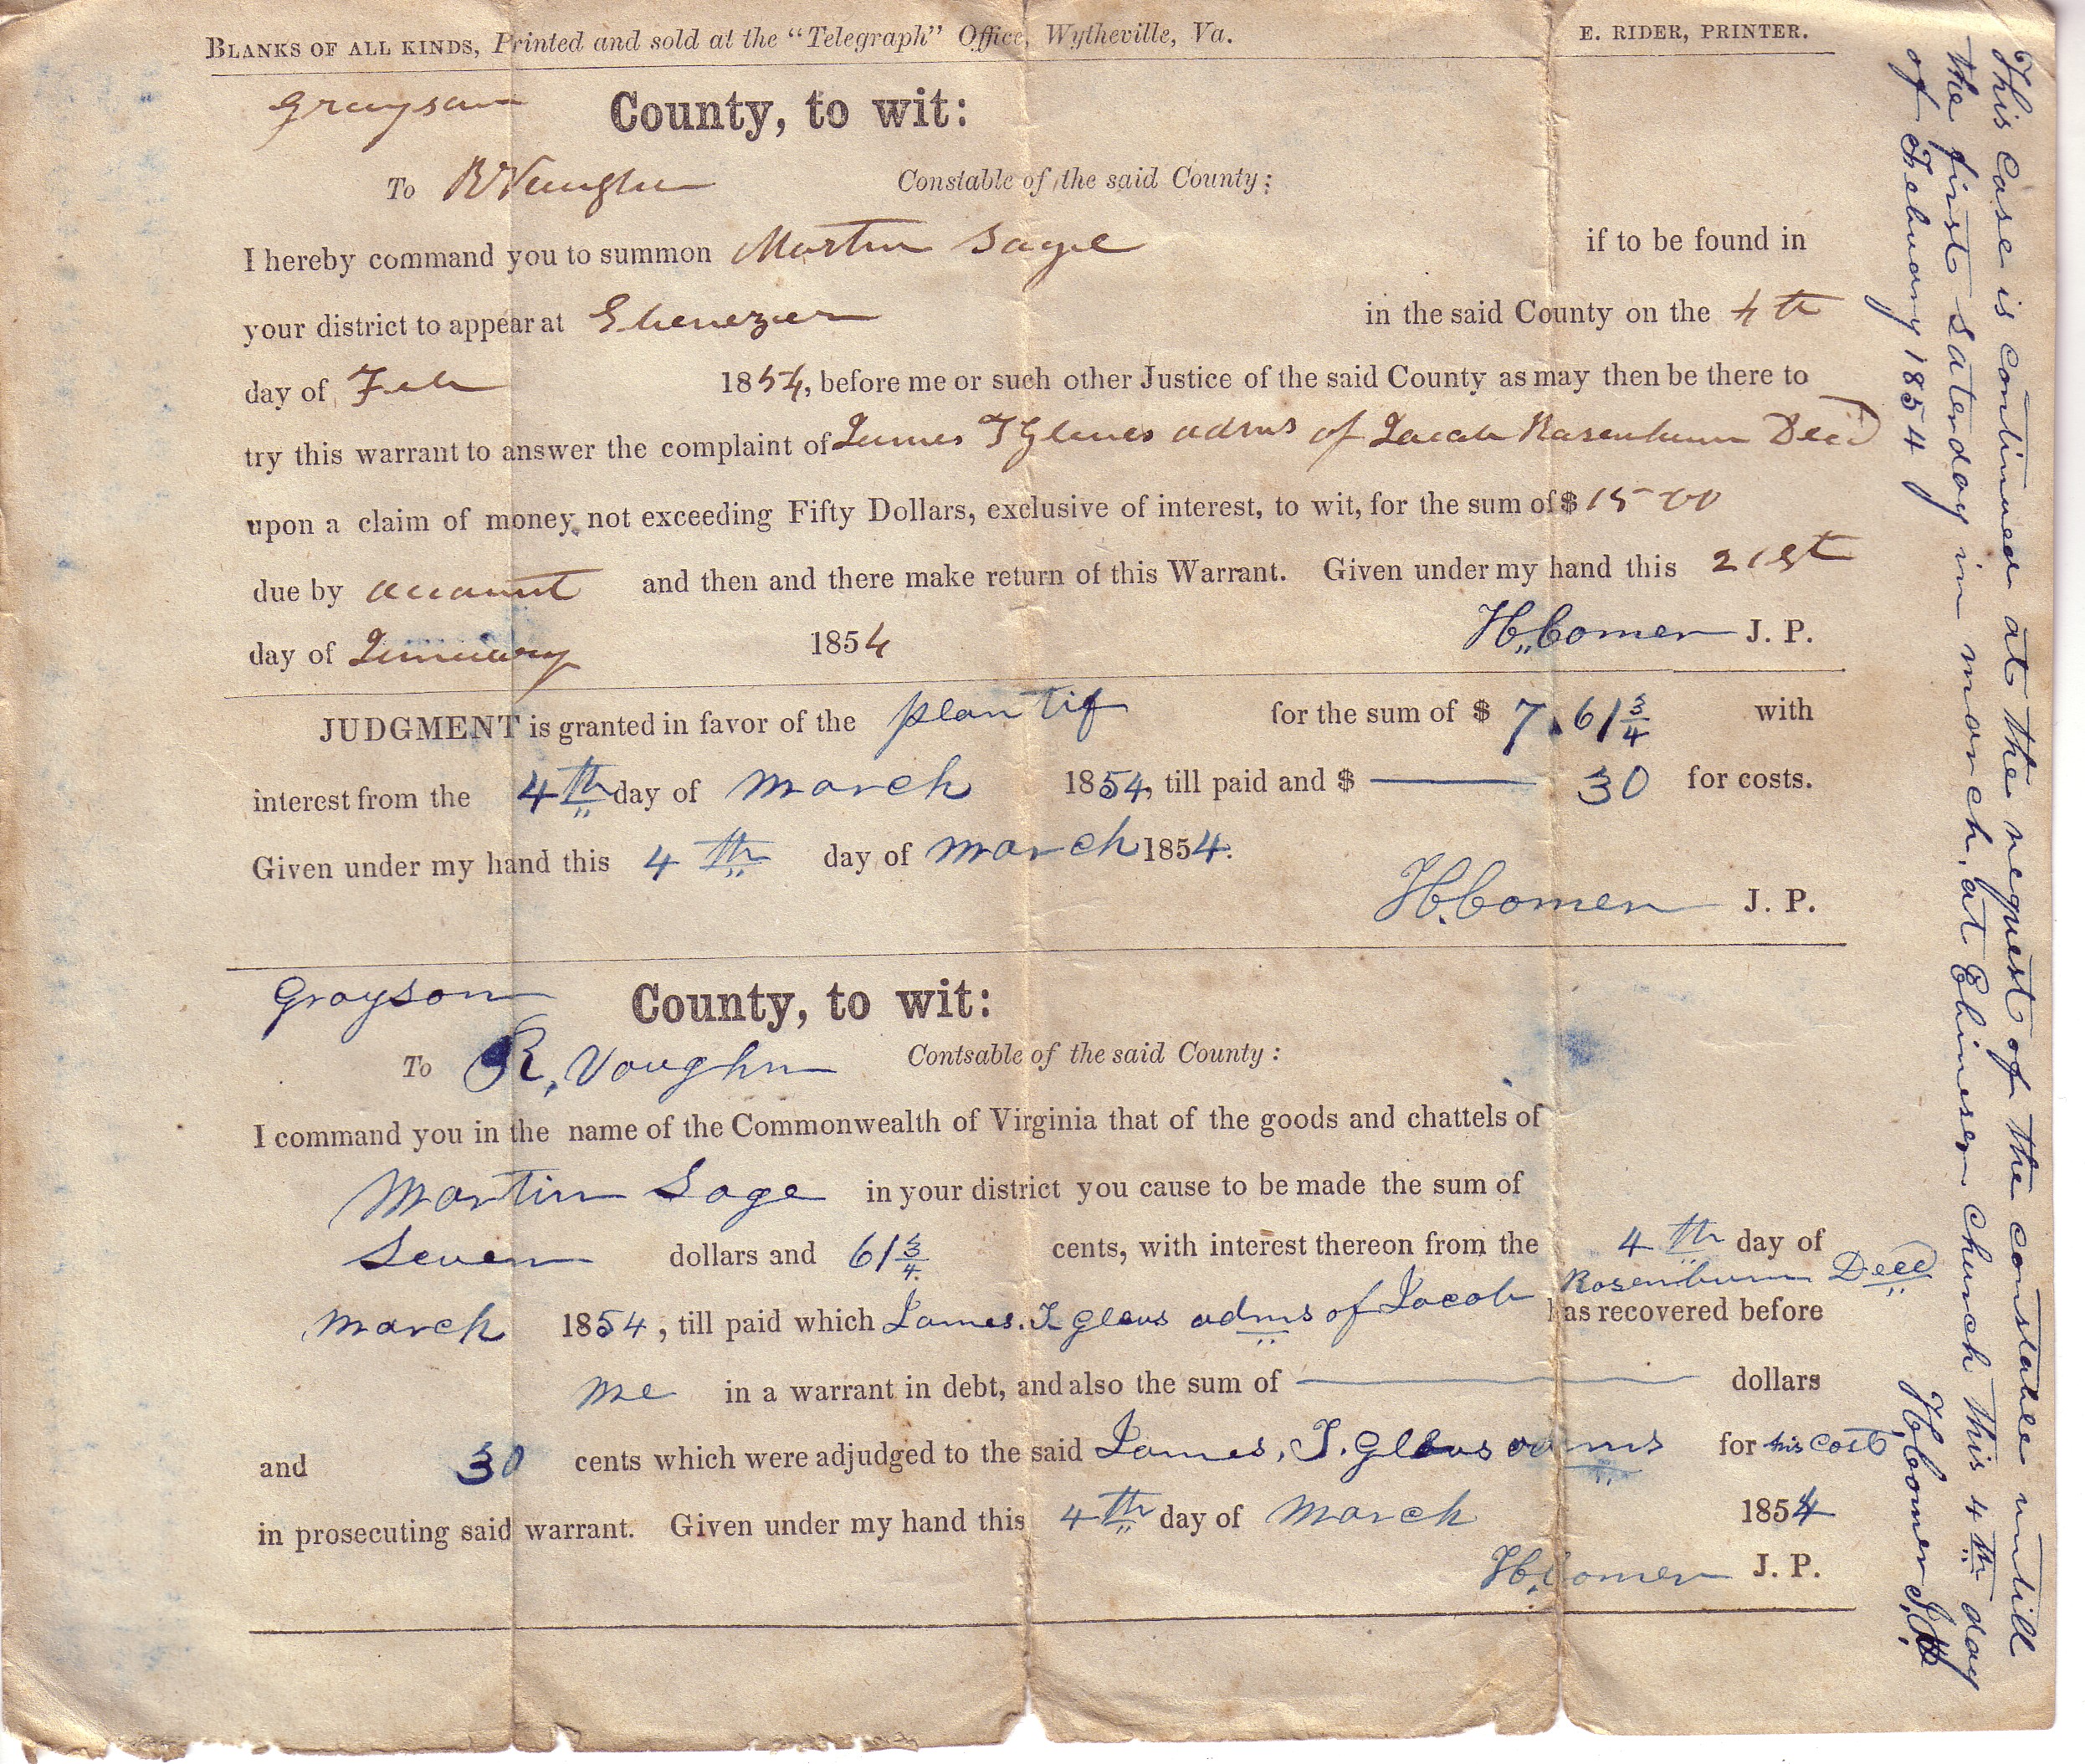 BLANKS OF ALL KINDS, Printed and sold at the "Telegraph" Office, Wytheville, Va. E. RIDER, PRINTER.
Grayson County, to wit:
To R Vaughn Constable of the said County:
I hereby command you to summon Martin Sage if to be found in
your district to appear at Ebenezer in the said County on the 4th
day of Feb 1854, before me or such other Justice of the said County as may then be there to
try this warrant to answer the complaint of James T Gleaves adms of Jacob Rosenbum Decd
upon a claim of money not exceeding Fifty Dollars, exclusive of interest, to wit, for the sum of $ 15 00
due by account and then and there make return of this Warrant. Given under my hand this 21st
day of January 1854 H. Comer J. P.
JUDGMENT is granted in favor of the plantif for the sum of $ 7.61 3/4 with
interest from the 4th day of march 1854, till paid and $ —— 30 for costs.
Given under my hand this 4th day of march 1854.
H. Comer J. P.
Grayson County, to wit:
To R. Vaughn Contsable of the said County:
I command you in the name of the Commonwealth of Virginia that of the goods and chattels of
Martin Sage in your district you cause to be made the sum of
Seven dollars and 61 3/4 cents, with interest thereon from the 4th day of
march 1854, till paid which James. T gleavs adms of Jacob Rosenbum Decd has recovered before
me in a warrant in debt, and also the sum of —— dollars
and 30 cents which were adjudged to the said James. T. gleavs adms for his cost
in prosecuting said warrant. Given under my hand this 4th day of march 1854
H. Comer J. P.
This case is continued at the request of the constable untill
the first saterday in march, at Ebineser church this 4th day
of February 1854 H. Comer J. P.